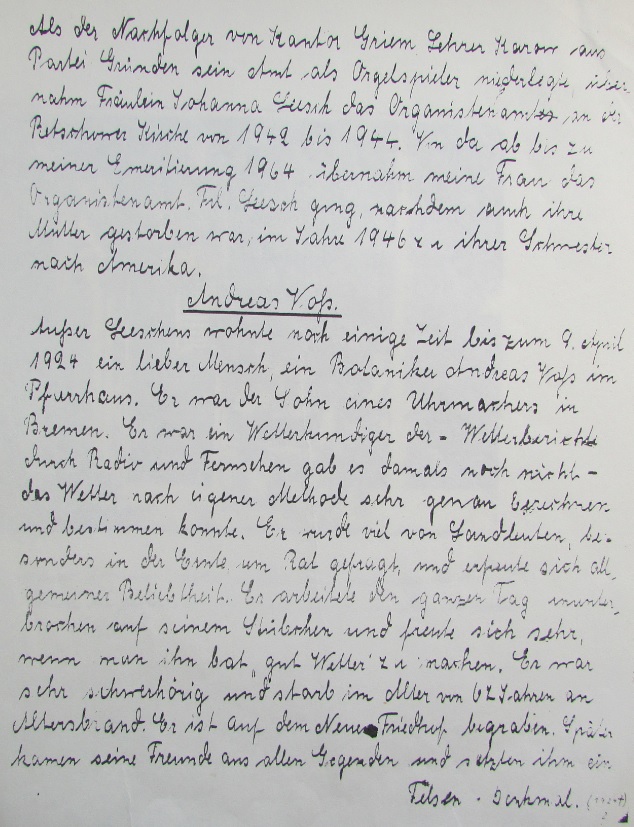 Als der Nachfolger von Kantor Griem Lehrer Karow aus
Partei Gründen sein Amt als Orgelspieler niederlegte, über
nahm Fräulein Johanna Leesch das Organistenamt an der
Retschower Kirche von 1942 bis 1944. Von da ab bis zu
meiner Emeritierung 1964 übernahm meine Frau das
Organistenamt. Frl. Leesch ging, nachdem auch ihre
Mutter gestorben war, im Jahre 1946 zu ihrer Schwester
nach Amerika.
Andreas Voß.
Außer Leeschens wohnte noch einige Zeit bis zum 9. April
1924 ein lieber Mensch, ein Botaniker Andreas Voß im
Pfarrhaus. Er war der Sohn eines Uhrmachers in
Bremen. Er war ein Wetterkundiger der - Wetterberichte
durch Radio und Fernsehen gab es damals noch nicht -
das Wetter nach eigener Methode sehr genau berechnen
und bestimmen konnte. Er wurde viel von Landleuten, be-
sonders in der Ernte um Rat gefragt, und erfreute sich all,
gemeiner Beliebtheit. Er arbeitete den ganzen Tag ununter,
brochen auf seinem Stübchen und freute sich sehr,
wenn man ihn bat „gut Wetter" zu machen. Er war
sehr schwerhörig und starb im Alter von 67 Jahren an
Altersbrand. Er ist auf dem Neuen Friedhof begraben. Später
kamen seine Freunde aus allen Gegenden und setzten ihm ein
Felsen - Denkmal.